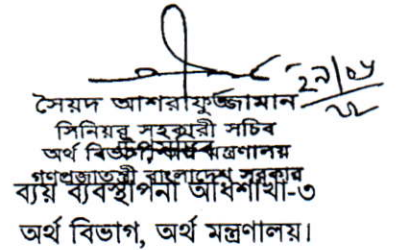 সৈয়দ আশরাফুজ্জামান
সিনিয়র সহকারী সচিব
অর্থ বিভাগ, অর্থ মন্ত্রণালয়
গণপ্রজাতন্ত্রী বাংলাদেশ সরকার
ব্যয় ব্যবস্থাপনা অধিশাখা-৩
অর্থ বিভাগ, অর্থ মন্ত্রণালয়।